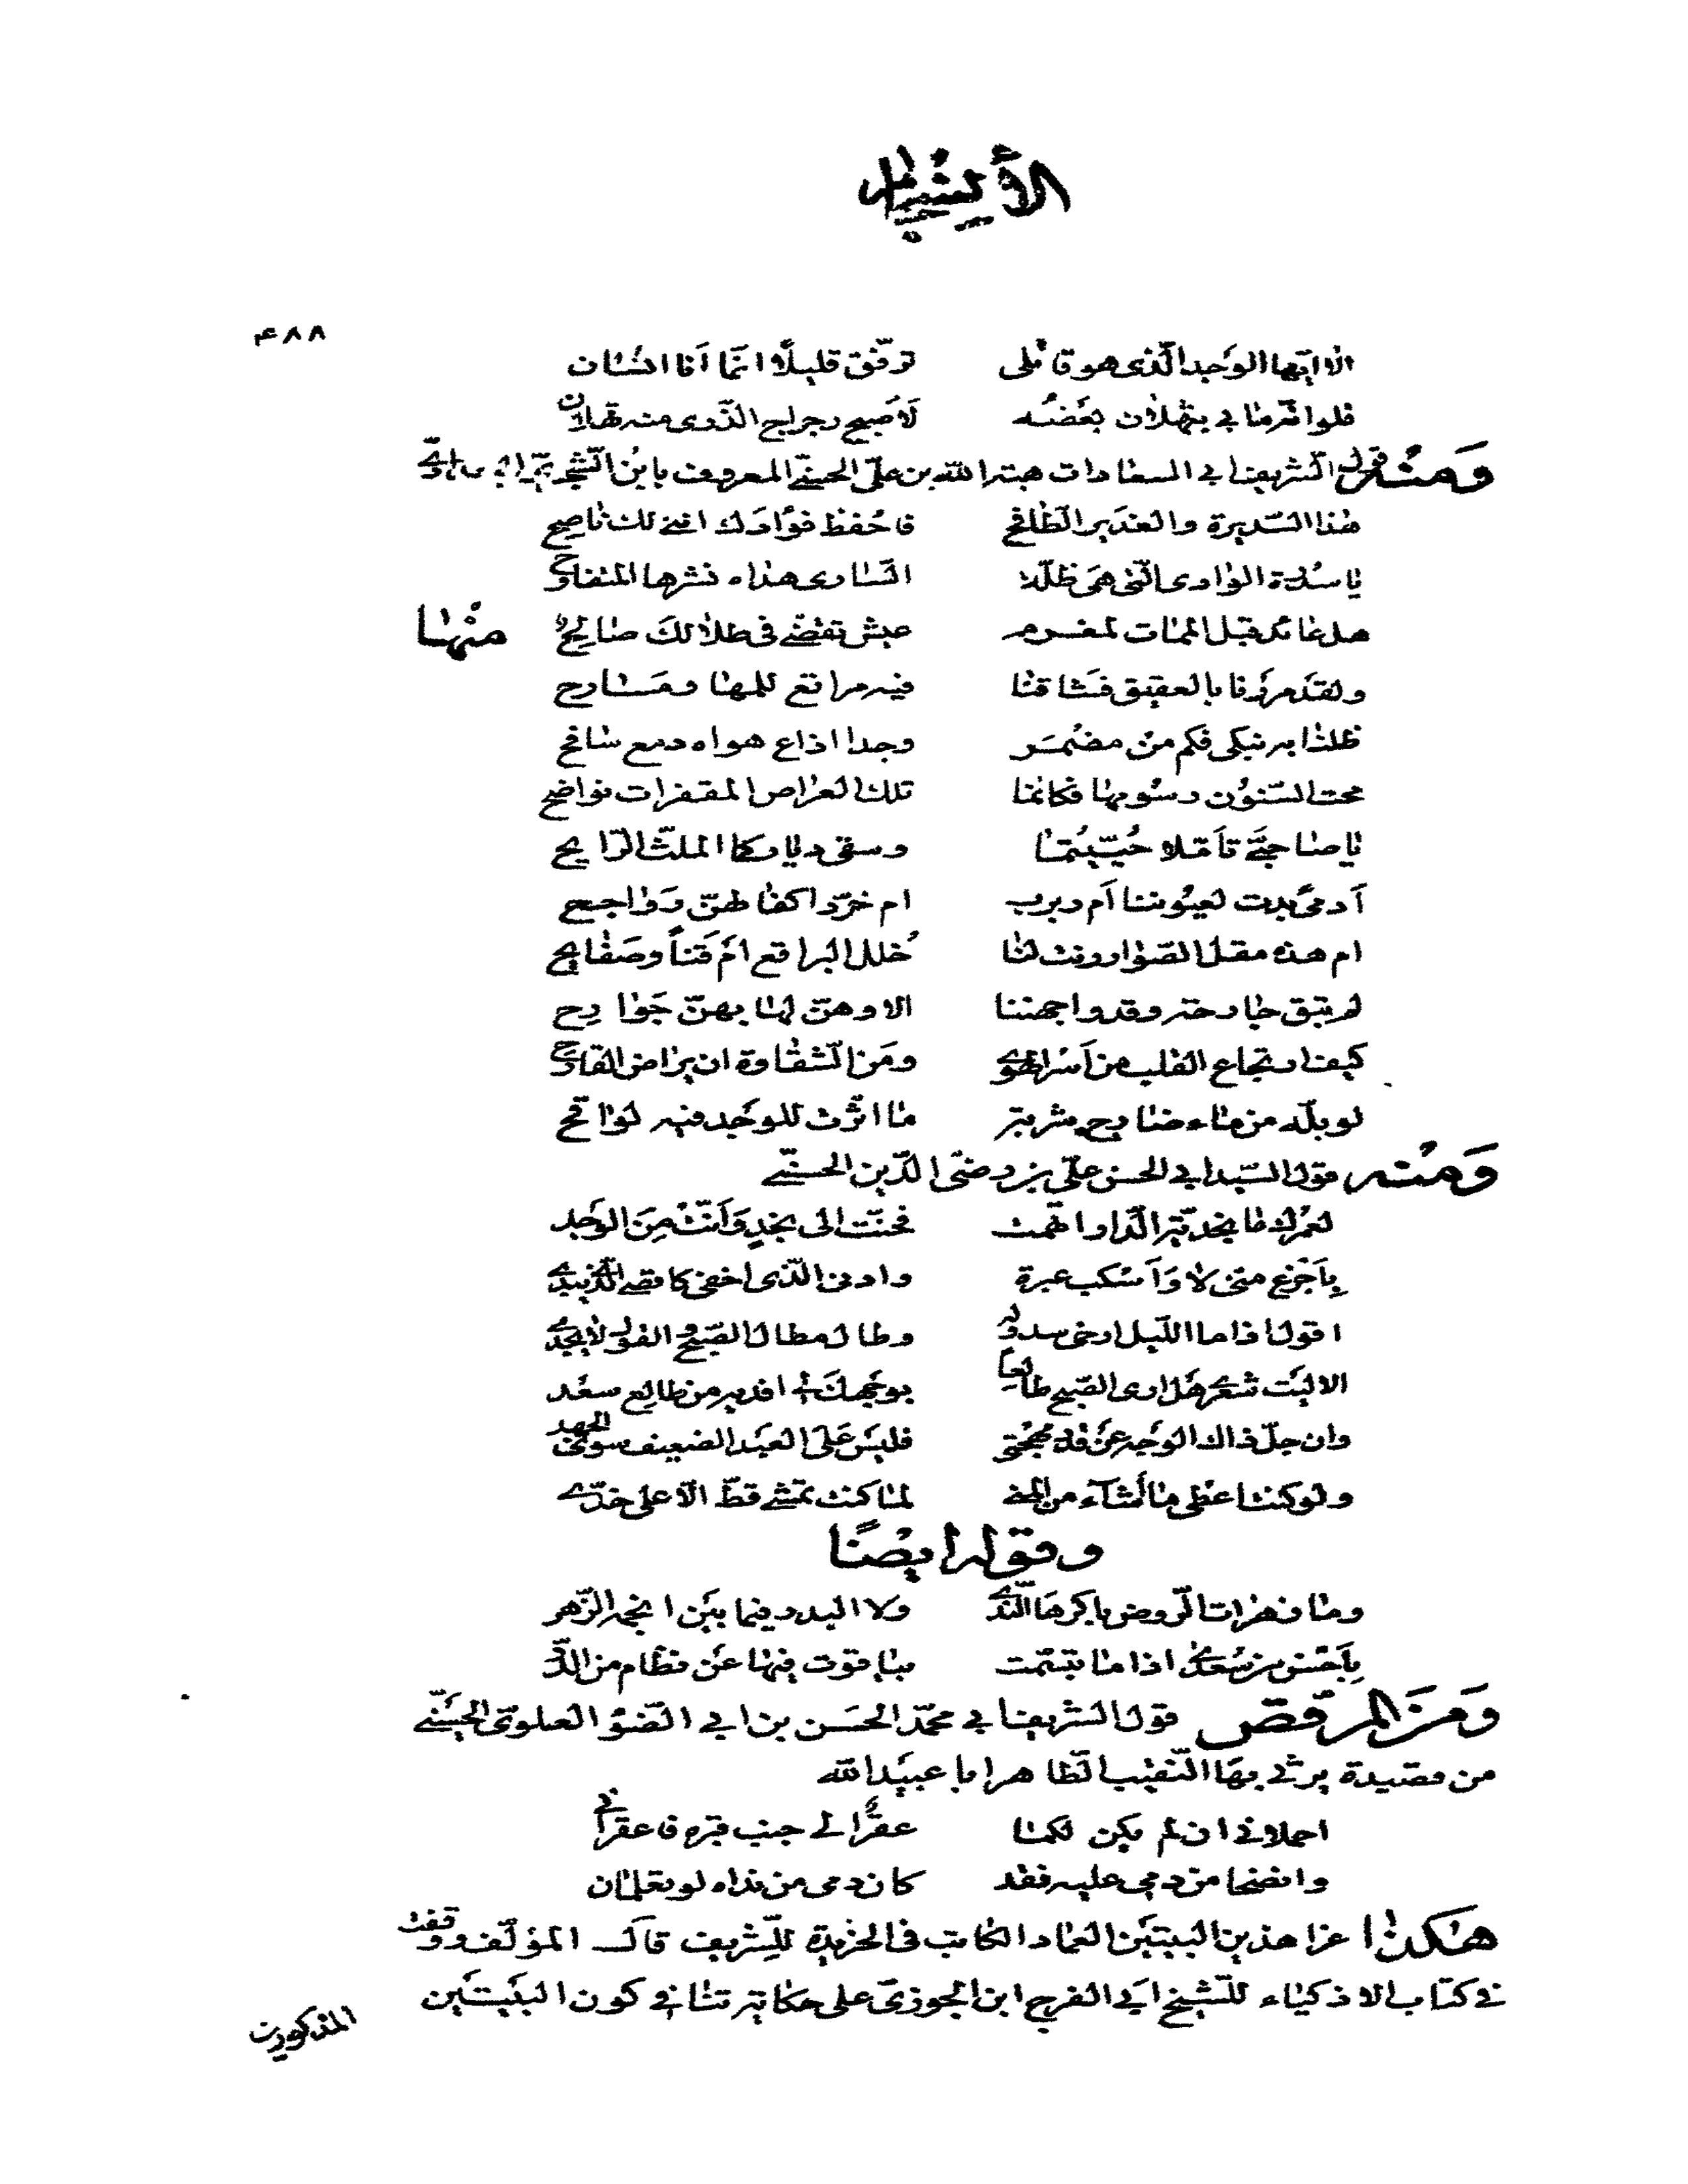 ٤٨٨
الا ايّها الوَجد الّذى هو قاتلى ترفّق قليلًا انّما اَنا انسان
فلو انّ ما بى بثهلان بعضُه لَاَصبح رجراج الذّرى منه ثهلان
وَمنْه قول الشريف ابى السعادات هبة الله بن علىّ الحسنىّ المعروف بابن الشّجرىّ
هذا السّديرة والغدير الطّافح فاحفظ فؤادك اننى لك ناصح
يا سدرة الوادى الّتى هى ظلّه السّارى هداه نشرها المتفاوح
هل عائد قبل الممات لمغرم عيش تقضّى فى ظلالك صالح منْها
ولقد مررنا بالعقيق فشاقنا فيه مراتع للمها ومسارح
ظلنا به نبكى فكم من مضمر وجدا اذاع هواه دمع سافح
محت السّنون رسومها فكانما تلك العراص المقفرات نواضح
يا صاحبىّ تاَمّلا حُيّيتُما وسقى دياركما الملثّ الرّايح
اَدمىً بدت لعيوننا اَم ربرب ام خرّد اكفالهنّ رَواجح
ام هذه مقل الصّوار رنت لنا خلل البراقع امْ قناً وصَفايح
لم تبق جارحة وقد واجهننا الا وهنّ لها بهنّ جَوارح
كيف ارتجاع القلب من اَسر الهوى ومَن الشقاوة ان يراض القارح
لو بلّه من ماء ضارح شربة ما اثّرت للوجد فيه لواقح
وَمنْه قول السّيد ابى الحسن علىّ بن رضىّ الدّين الحسنىّ
باَجزع منّى لا وَاَسكب عبرة وادنى الّذى اخفى كاقصى الّذى ابدى
اقول اذا ما اللّيل ارخى سدوله وطال مطال الصّبح والقول لا يجدى
الا ليت شعرى هَل ارى الصّبح طالعا بوجهك افديه من طالع سعد
وان جلّ ذاك الوجه عن فدى مهجتى فليس عَلى العبد الضعيف سوى الجهد
ولو كنت اعطى ما اَشآء من المنى لما كنت تمشى قطّ الّا على خدّى
وقوله ايضًا
وما زهرات الرّوض باكرها النّدى ولا البدر فيما بين انجمه الزّهر
باَحسن من سُعدى اذا ما تبسّمت بياقوت فيها عن نظام من الدّر
وَمن المرقص قول الشريف ابى محمّد الحسَن بن ابى الضّوء العلوىّ الحسَنىّ
من قصيدة يرثى بها النّقيب الطّاهر ابا عبيد الله
احملانى ان لم يكن لكما عقرٌ الى جنب قبره فاعقرانى
وانضحا من دمى عليه فقد كان دمى من نداه لو تعلمان
هٰكذا عزا هذين البيتين العماد الكاتب فى الخريدة للشريف قال المؤلّف ووقفت
فى كتاب الاذكياء للشيخ ابى الفرج ابن الجوزىّ على حكاية تنافى كون البيتين
المذكورين